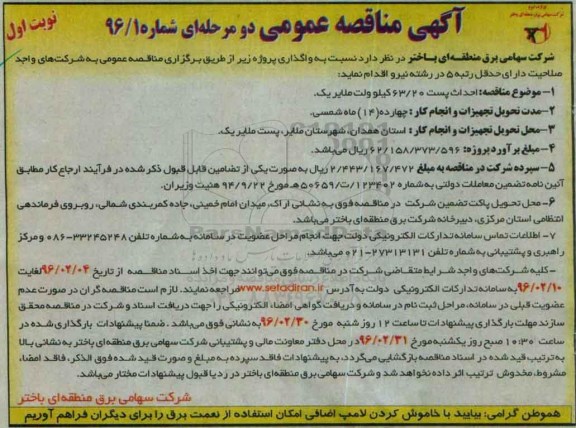 نوبت اول
آگهی مناقصه عمومی دو مرحله‌ای شماره ۹۶/۱
شرکت سهامی برق منطقه‌ای باختر در نظر دارد نسبت به واگذاری پروژه زیر از طریق برگزاری مناقصه عمومی به شرکت‌های واجد
صلاحیت دارای حداقل رتبه ۵ در رشته نیرو اقدام نماید:
۱- موضوع مناقصه: احداث پست ۶۳/۲۰ کیلو ولت ملایر یک.
۲- مدت تحویل تجهیزات و انجام کار: چهارده (۱۴) ماه شمسی.
۳- محل تحویل تجهیزات و انجام کار: استان همدان، شهرستان ملایر، پست ملایر یک.
۴- مبلغ برآورد پروژه: ۶۲/۱۵۸/۳۷۳/۵۹۶ ریال می‌باشد.
۵- سپرده شرکت در مناقصه به مبلغ ۲/۴۴۳/۱۶۷/۴۷۲ ریال به صورت یکی از تضامین قابل قبول ذکر شده در فرآیند ارجاع کار مطابق
آئین نامه تضمین معاملات دولتی به شماره ۱۲۳۴۰۲/ت۵۰۶۵۹هـ مورخ ۹۴/۹/۲۲ هئیت وزیران.
۶- محل تحویل پاکت تضمین شرکت در مناقصه فوق به نشانی اراک، میدان امام خمینی، جاده کمربندی شمالی، روبروی فرماندهی
انتظامی استان مرکزی، دبیرخانه شرکت برق منطقه‌ای باختر می‌باشد.
۷- اطلاعات تماس سامانه تدارکات الکترونیکی دولت جهت انجام مراحل عضویت در سامانه به شماره تلفن ۳۳۲۴۵۲۴۸-۰۸۶ و مرکز
راهبری و پشتیبانی به شماره تلفن ۲۷۳۱۳۱۳۱-۰۲۱ می‌باشد.
- کلیه شرکت‌های واجد شرایط متقاضی شرکت در مناقصه فوق می‌توانند جهت اخذ اسناد مناقصه از تاریخ ۹۶/۰۲/۰۴ لغایت
۹۶/۰۲/۱۰ به سامانه تدارکات الکترونیکی دولت به آدرس www.setadiran.ir مراجعه نمایند. لازم است مناقصه گران در صورت عدم
عضویت قبلی در سامانه، مراحل ثبت نام در سامانه و دریافت گواهی امضاء الکترونیکی را جهت دریافت اسناد و شرکت در مناقصه محقق
سازند مهلت بارگذاری پیشنهادات تا ساعت ۱۲ روز شنبه مورخ ۹۶/۰۲/۳۰ به نشانی فوق می‌باشد. ضمنا پیشنهادات بارگذاری شده در
ساعت ۱۰:۳۰ صبح روز یکشنبه مورخ ۹۶/۰۲/۳۱ در محل دفتر معاونت مالی و پشتیبانی شرکت سهامی برق منطقه‌ای باختر به نشانی بالا
به ترتیب قید شده در اسناد مناقصه بازگشایی می‌گردد، به پیشنهادات فاقد سپرده به مبلغ و صورت قید شده فوق الذکر، فاقد امضاء،
مشروط، مخدوش ترتیب اثر داده نخواهد شد و شرکت سهامی برق منطقه‌ای باختر در رد یا قبول پیشنهادات مختار می‌باشد.
شرکت سهامی برق منطقه‌ای باختر
هموطن گرامی: بیایید با خاموش کردن لامپ اضافی امکان استفاده از نعمت برق را برای دیگران فراهم آوریم